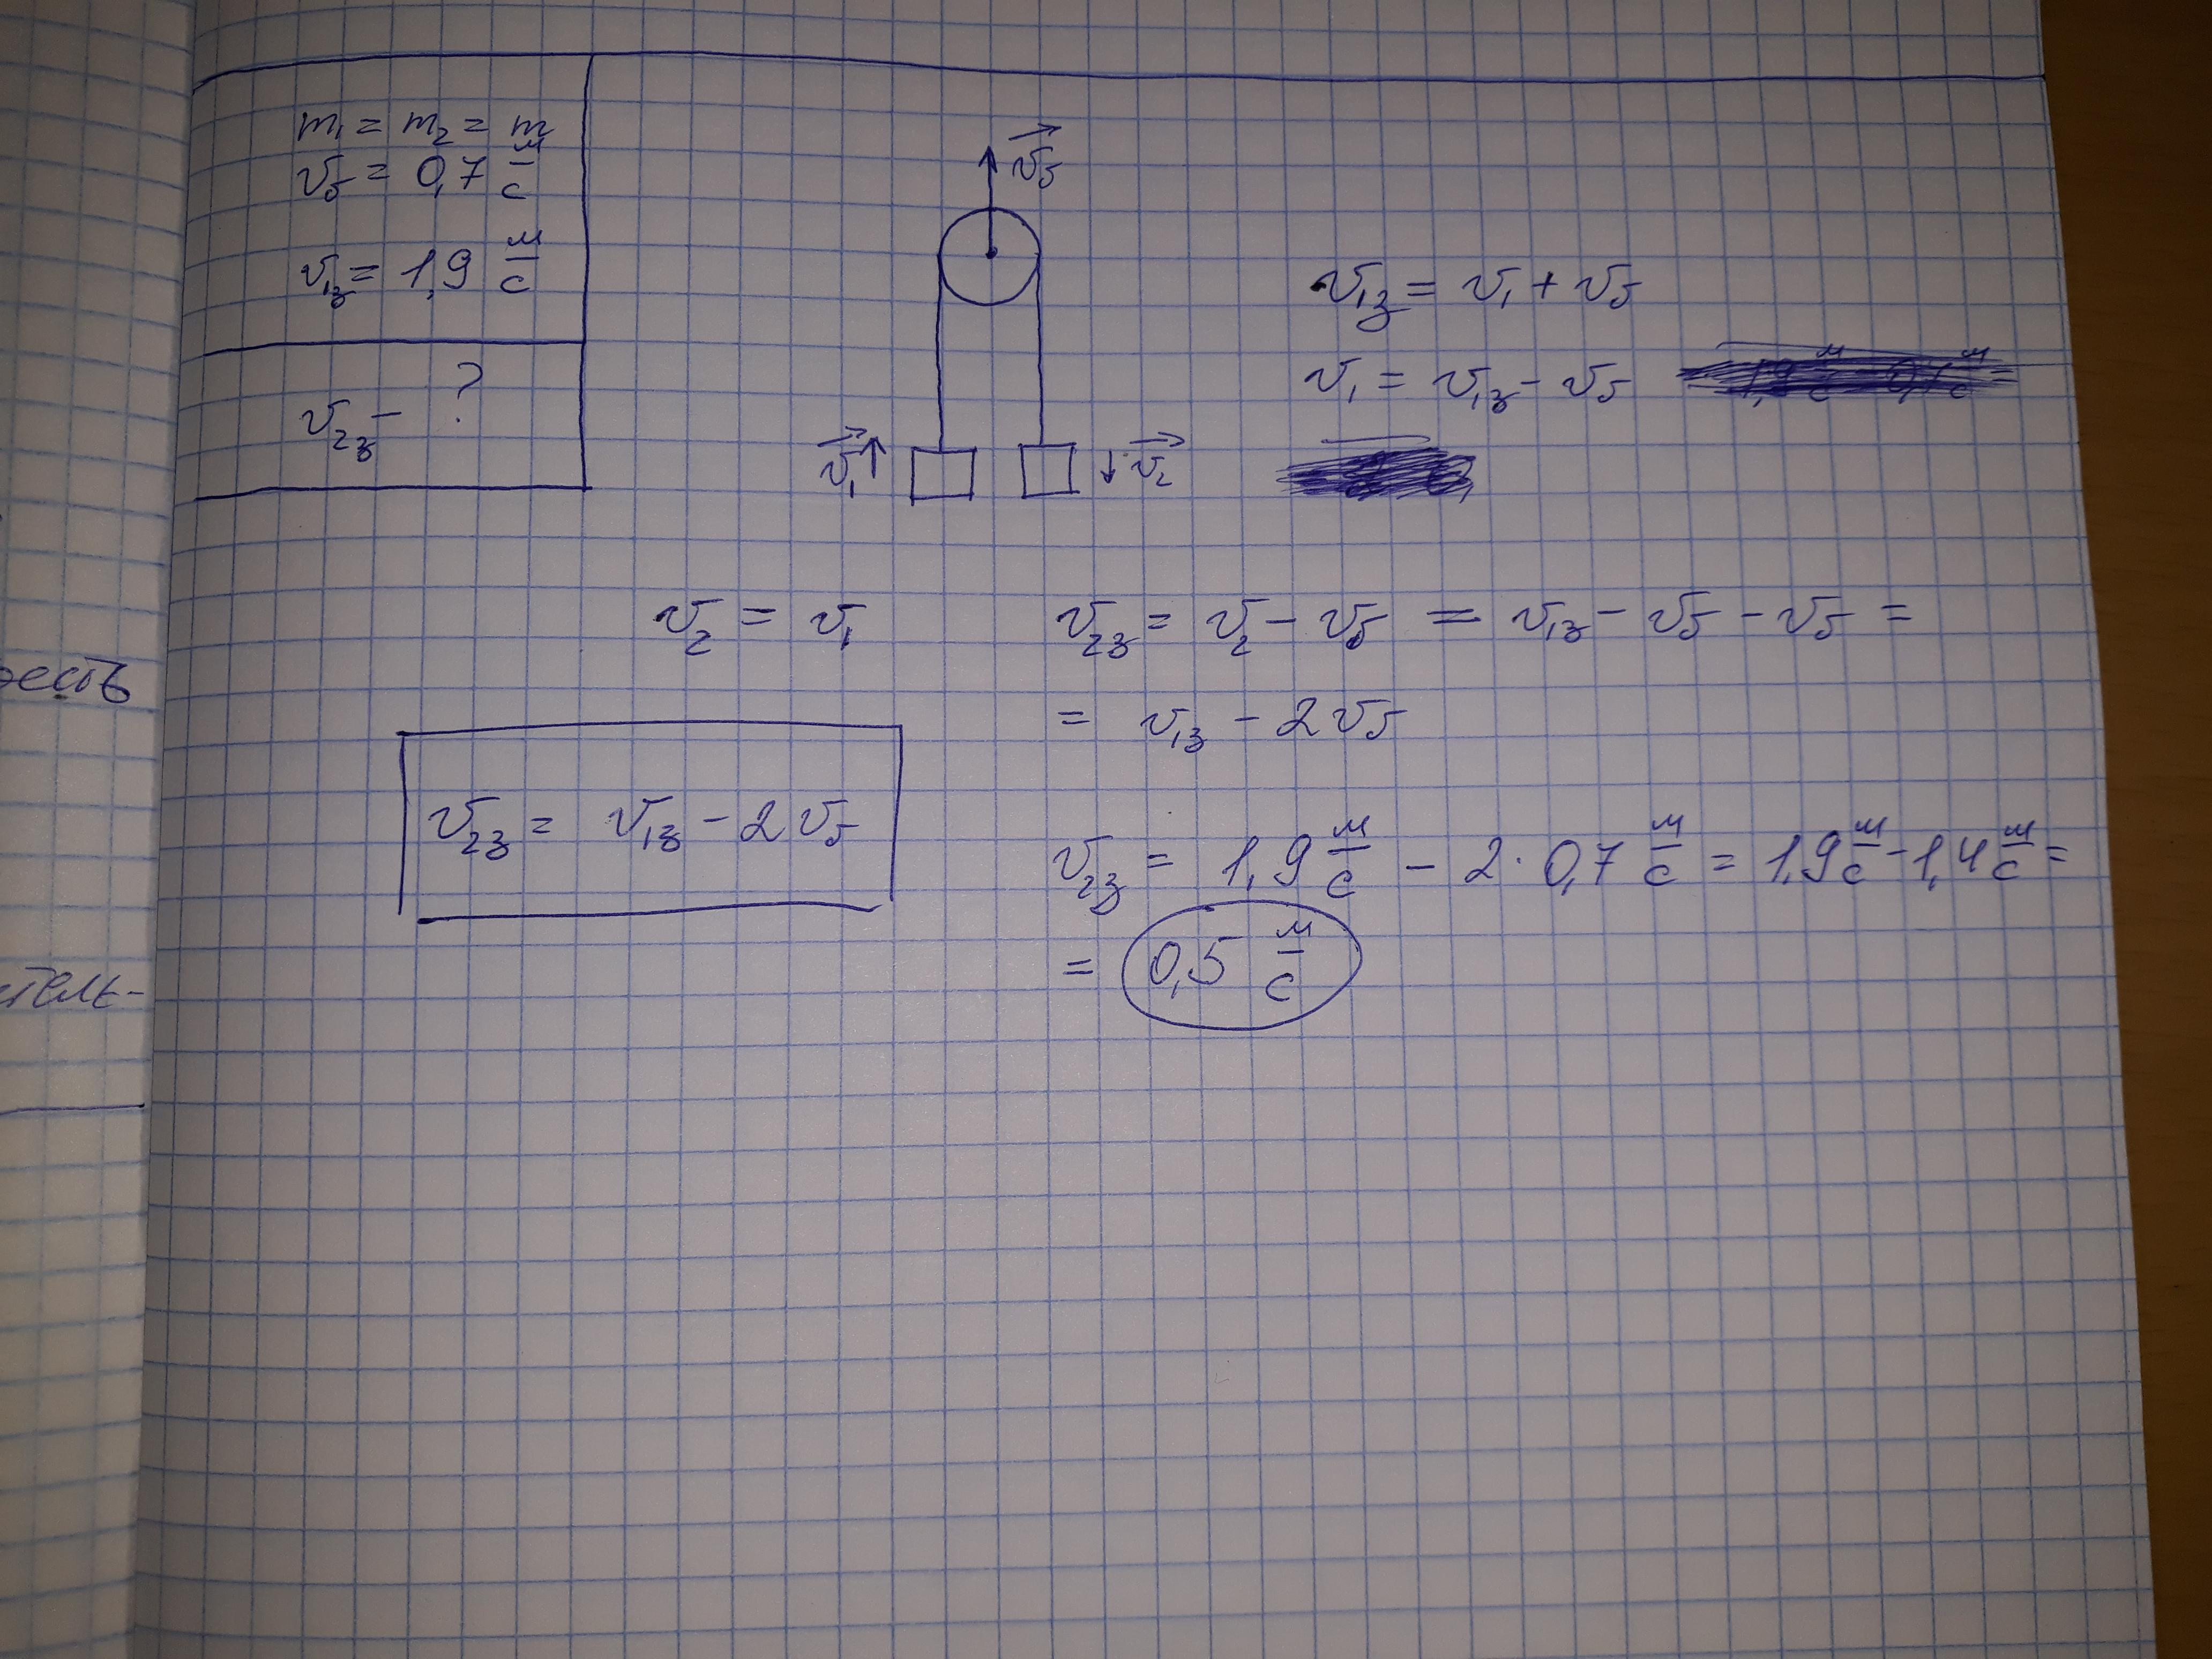 m₁ = m₂ = m
v₅ = 0,7 м/с
v₁з = 1,9 м/с
v₂з – ?
v₅
v₁
v₂
v₁з = v₁ + v₅
v₁ = v₁з – v₅
v₂ = v₁
v₂з = v₂ – v₅ = v₁з – v₅ – v₅ =
= v₁з – 2v₅
v₂з = v₁з – 2v₅
v₂з = 1,9 м/с – 2 · 0,7 м/с = 1,9 м/с – 1,4 м/с =
= 0,5 м/с